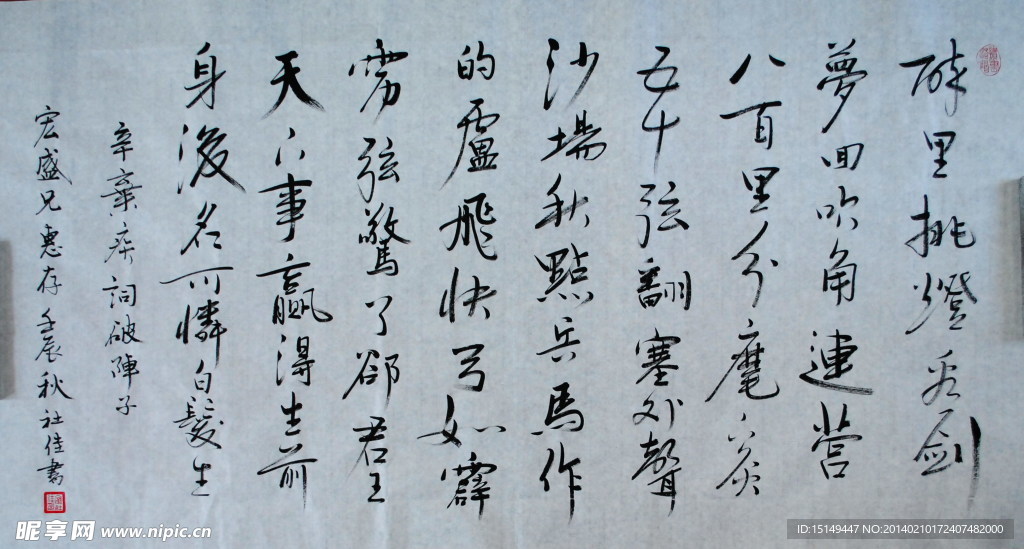 醉里挑燈看劍
夢回吹角連營
八百里分麾下炙
五十弦翻塞外聲
沙場秋點兵馬作
的盧飛快弓如霹
雳弦驚了卻君王
天下事贏得生前
身後名可憐白髮生
辛棄疾詞破陣子
宏盛兄惠存壬辰秋社佳書
昵享网 www.nipic.cn
ID:15149447 NO:20140210172407482000